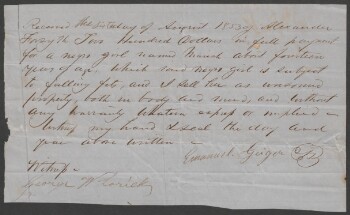 Received this 1st day of August 1853 of Alexander
Forsyth Two Hundred Dollars in full payment
for a negro girl named Mariah about fourteen
years of age. Which said negro girl is subject
to falling fits, and I sell her as unsound
property, both in body and mind, and without
any warranty whatever express or implied
witness my hand & seal the day and
year above written
Emanuel Geiger
Witness
George W